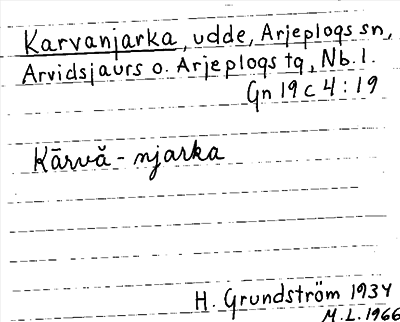 Karvanjarka, udde, Arjeplogs sn,
Arvidsjaurs o. Arjeplogs tg, Nb. l.
Gn 19 c 4 : 19
Kārvă - njarka
H. Grundström 1934
M.L. 1966